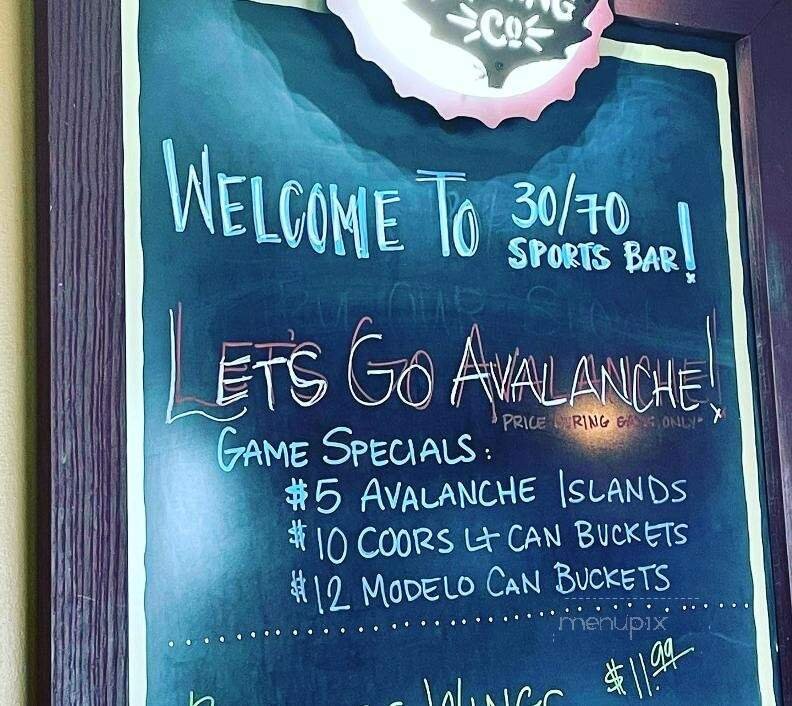 Co
WELCOME TO 30/70
SPORTS BAR!
LET'S GO AVALANCHE!
"PRICE DURING GAME ONLY"
GAME SPECIALS:
$5 AVALANCHE ISLANDS
$10 COORS LT CAN BUCKETS
$12 MODELO CAN BUCKETS
menupix
WINGS $11.99